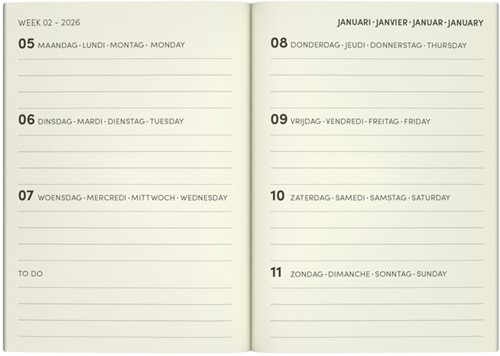 WEEK 02 - 2026
05 MAANDAG · LUNDI · MONTAG · MONDAY
06 DINSDAG · MARDI · DIENSTAG · TUESDAY
07 WOENSDAG · MERCREDI · MITTWOCH · WEDNESDAY
TO DO
JANUARI · JANVIER · JANUAR · JANUARY
08 DONDERDAG · JEUDI · DONNERSTAG · THURSDAY
09 VRIJDAG · VENDREDI · FREITAG · FRIDAY
10 ZATERDAG · SAMEDI · SAMSTAG · SATURDAY
11 ZONDAG · DIMANCHE · SONNTAG · SUNDAY